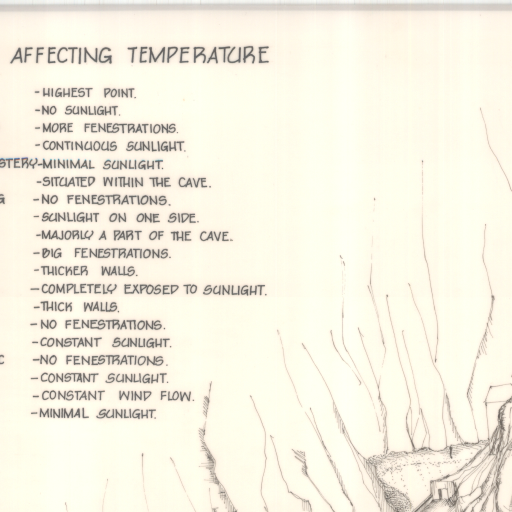 AFFECTING TEMPERATURE
-HIGHEST POINT.
-NO SUNLIGHT.
-MORE FENESTRATIONS.
-CONTINUOUS SUNLIGHT.
STERY-MINIMAL SUNLIGHT.
-SITUATED WITHIN THE CAVE.
G -NO FENESTRATIONS.
-SUNLIGHT ON ONE SIDE.
-MAJORLY A PART OF THE CAVE.
-BIG FENESTRATIONS.
-THICKER WALLS.
-COMPLETELY EXPOSED TO SUNLIGHT.
-THICK WALLS.
-NO FENESTRATIONS.
-CONSTANT SUNLIGHT.
C -NO FENESTRATIONS.
-CONSTANT SUNLIGHT.
-CONSTANT WIND FLOW.
-MINIMAL SUNLIGHT.